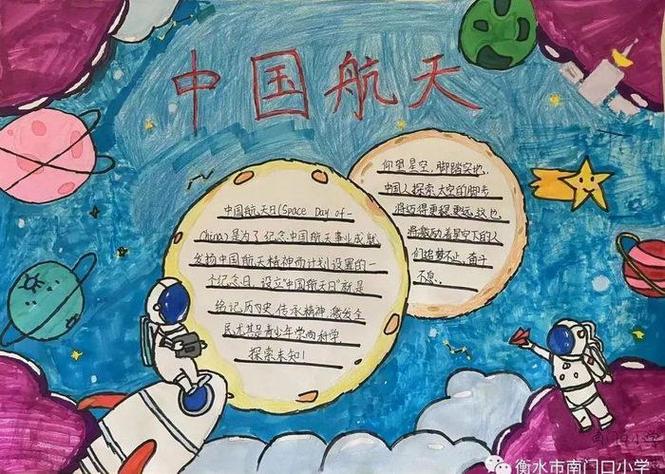 中国航天
中国航天日(Space Day of
China)是为了纪念中国航天事业成就
发扬中国航天精神而计划设置的一
个纪念日,设立"中国航天日"就是
铭记历史、传承精神,激发全
民尤其是青少年崇尚科学
探索未知!
仰望星空,脚踏实地,
中国人探索太空的脚步
将迈得更稳更远,这也
将激励着星空下的人
们追梦不止,奋斗
不息。
南门口小学
衡水市南门口小学